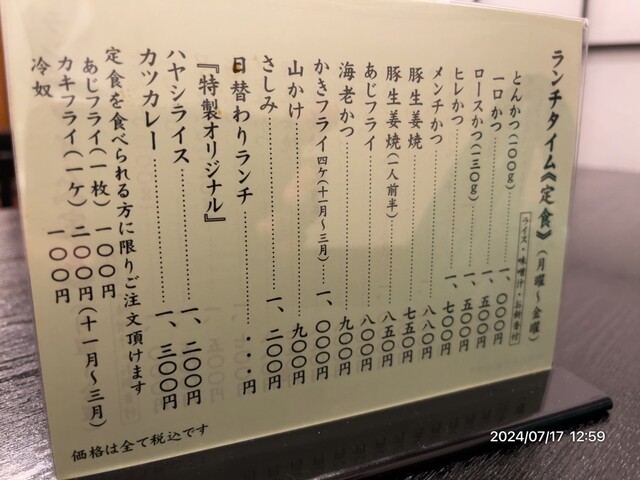 ランチタイム《定食》(月曜～金曜)
ライス・味噌汁・お新香付
とんかつ(一〇〇g)……一、〇〇〇円
一口かつ……一、五〇〇円
ロースかつ(一三〇g)……一、五〇〇円
ヒレかつ……一、七〇〇円
メンチかつ……八八〇円
豚生姜焼……七五〇円
豚生姜焼(一人前半)……八五〇円
あじフライ……八〇〇円
海老かつ……九〇〇円
かきフライ四ケ(十一月～三月)……一、〇〇〇円
山かけ……九〇〇円
さしみ……一、二〇〇円
日替わりランチ……・・・円
『特製オリジナル』
ハヤシライス……一、二〇〇円
カツカレー……一、三〇〇円
定食を食べられる方に限りご注文頂けます
あじフライ(一枚) 一〇〇円
カキフライ(一ケ) 二〇〇円(十一月～三月)
冷奴 一〇〇円
価格は全て税込です
2024/07/17 12:59